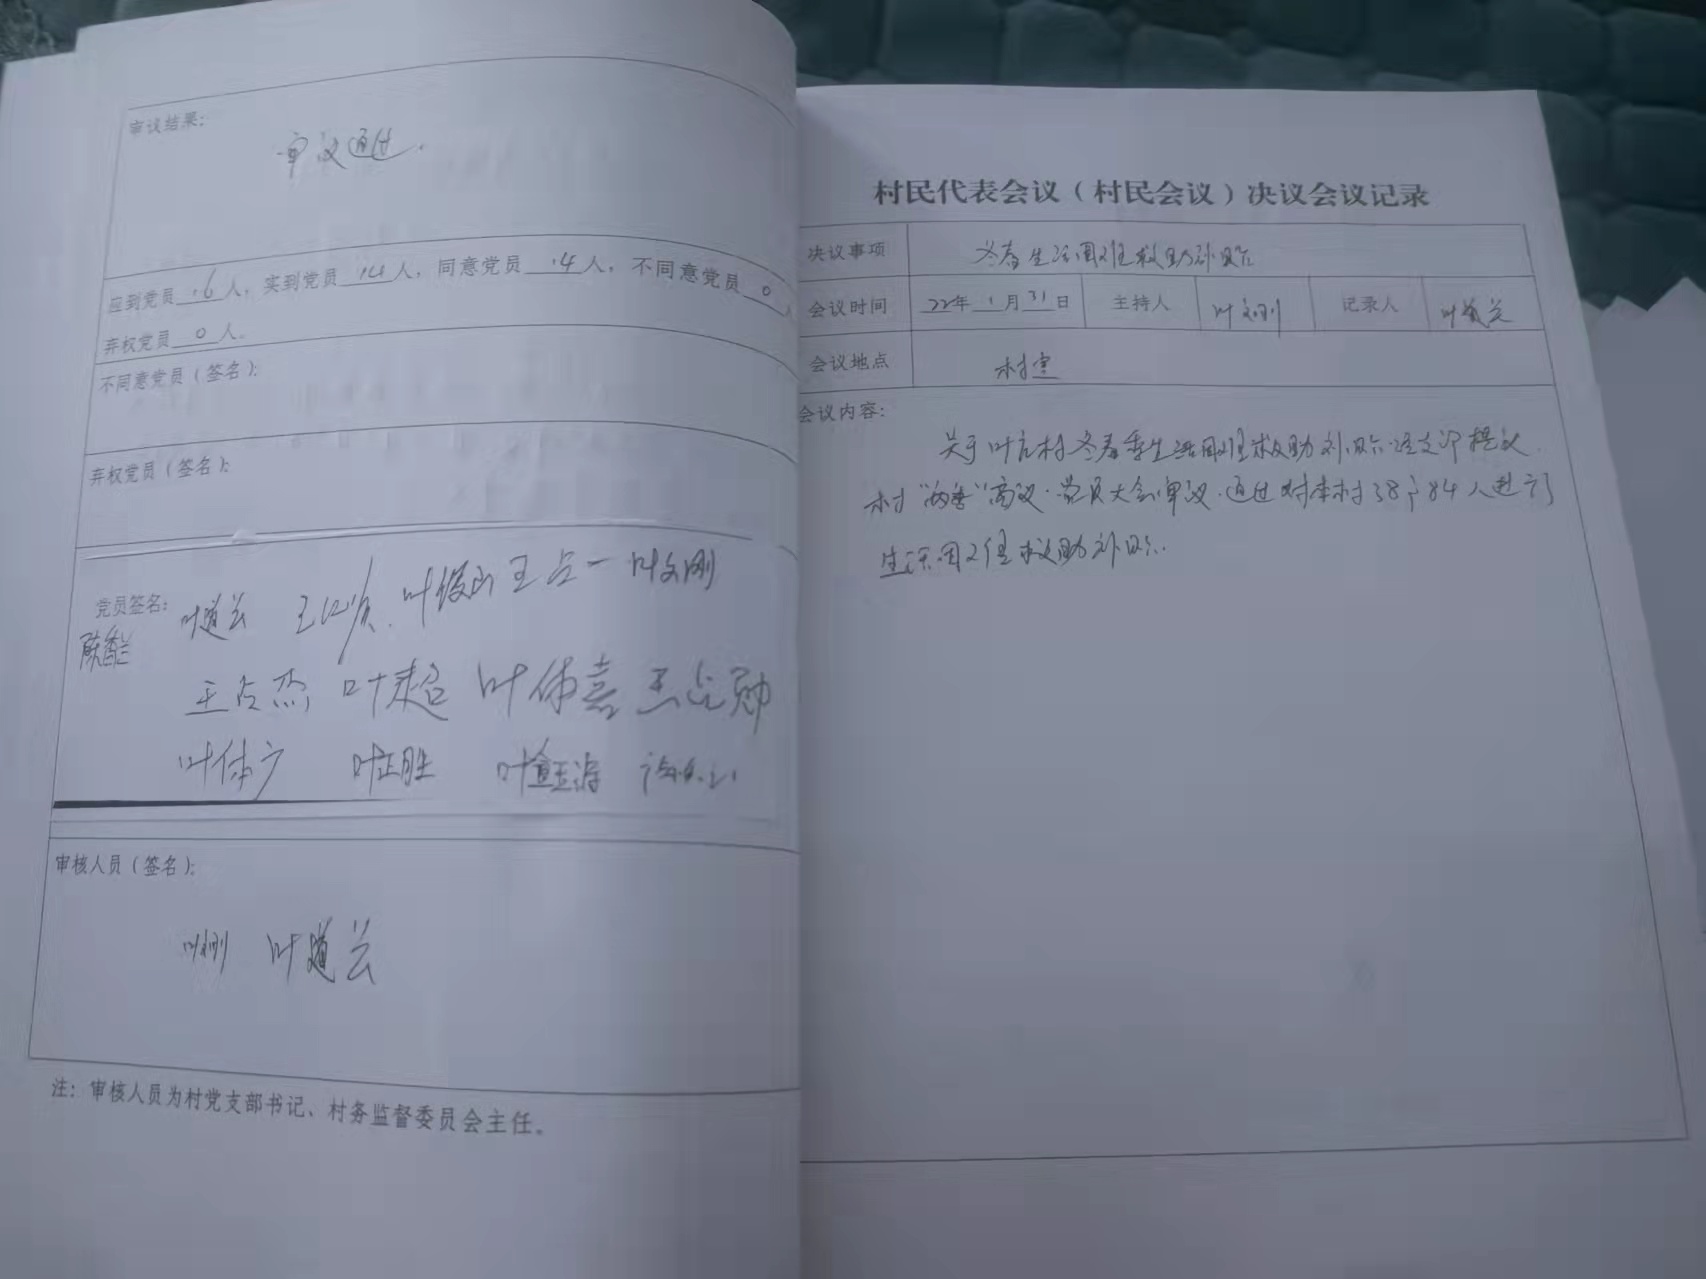 审议结果：
审议通过.
应到党员16人，实到党员14人，同意党员14人，不同意党员0人
弃权党员0人。
不同意党员（签名）：
弃权党员（签名）：
党员签名：
叶道云 叶俊山 王占一 叶文刚
陈香兰
王占杰 叶超 叶体喜 王占勋
叶体广 叶正胜
审核人员（签名）：
叶文刚 叶道云
注：审核人员为村党支部书记、村务监督委员会主任。
村民代表会议（村民会议）决议会议记录
决议事项 冬春生活困难救助补贴
会议时间 22年1月31日 主持人 叶文刚 记录人 叶道云
会议地点 村室
会议内容：
关于叶庄村冬春季生活困难救助补贴.经支部提议.
村“两委”商议.党员大会审议.通过对本村38户84人进行
生活困难救助补贴.